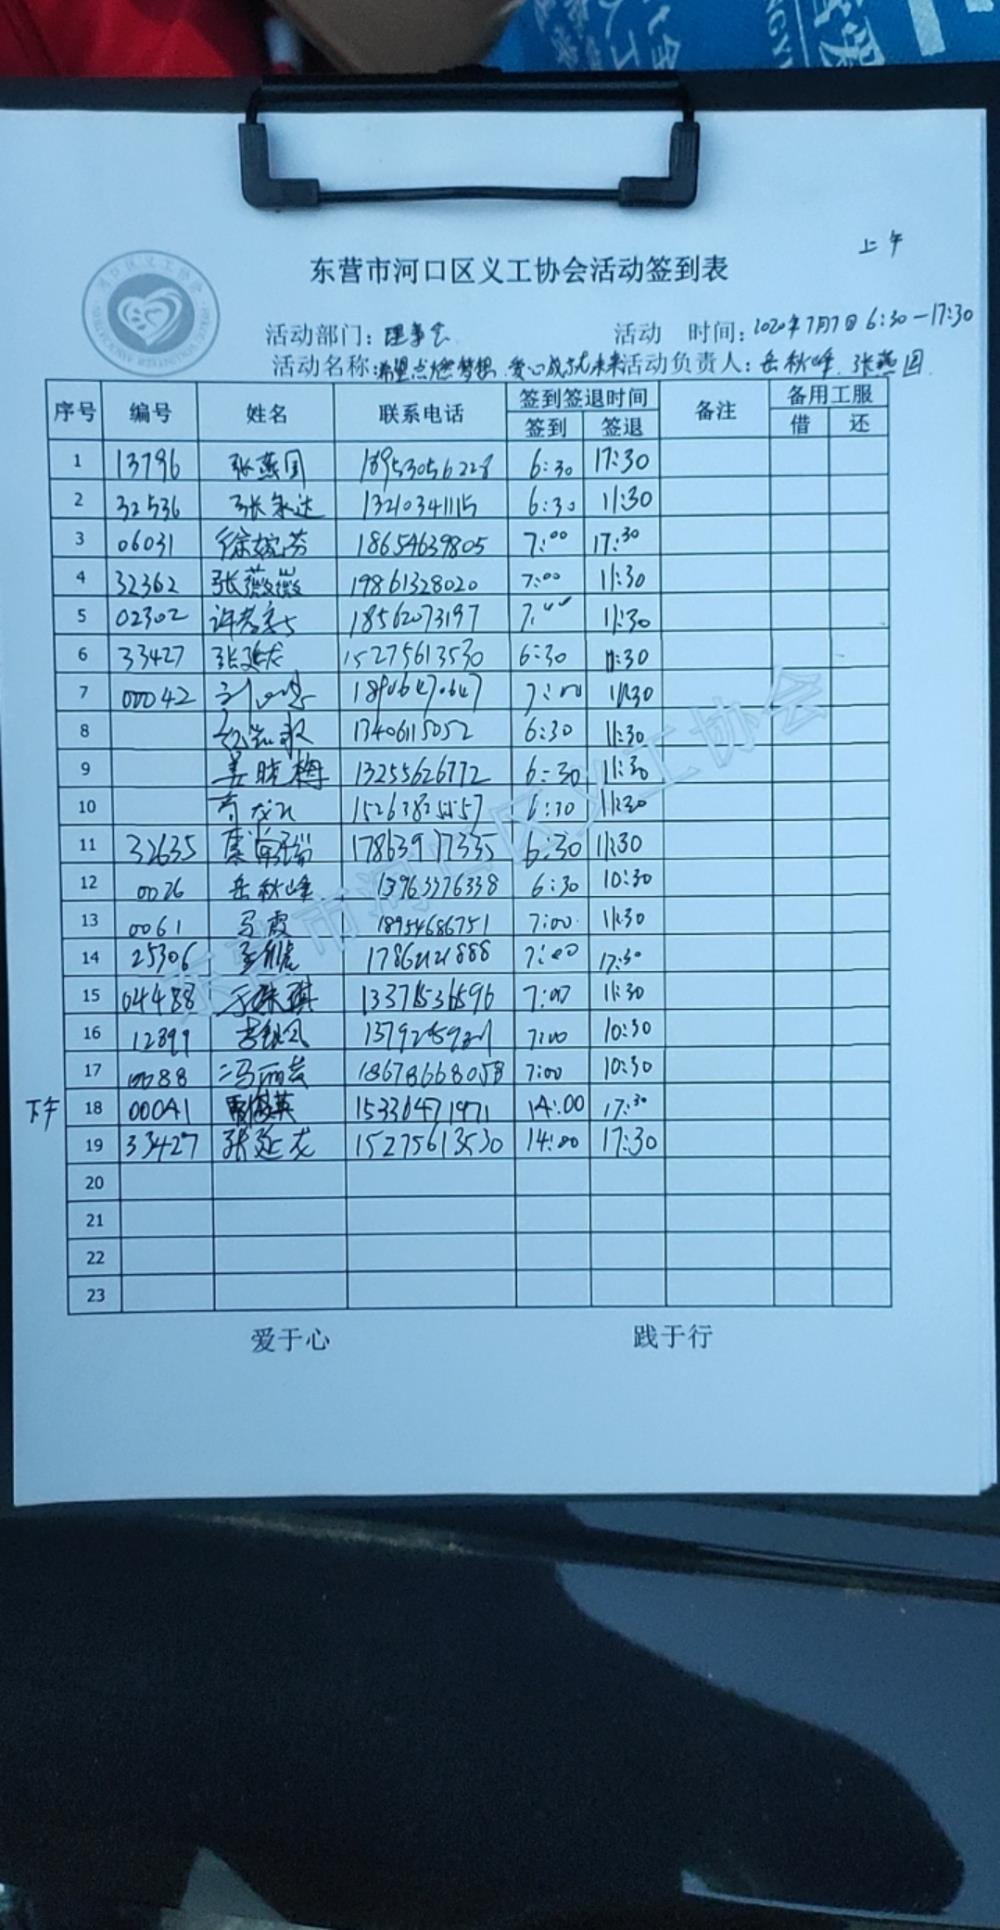 上午
东营市河口区义工协会活动签到表
活动部门：理事会 活动 时间：2020年7月7日 6:30—17:30
活动名称：希望点燃梦想 爱心成就未来 活动负责人：岳秋峰、张燕国
序号 编号 姓名 联系电话 签到签退时间 备注 备用工服
签到 签退 借 还
1 13796 张燕国 18953056228 6:30 17:30
2 32536 张永达 13210341115 6:30 11:30
3 06031 徐婉芬 18654639805 7:00 17:30
4 32362 张薇薇 19861328020 7:00 11:30
5 02302 18562073197 11:30
6 33427 张延龙 15275613530 6:30 11:30
7 00042 18906470647 7:00 11:30
8 13406115052 6:30 11:30
9 姜晓梅 13255626772 6:30 11:30
10 6:30 11:30
11 32635 17863917335 6:30 11:30
12 0026 岳秋峰 13963376338 6:30 10:30
13 0061 马霞 18954686751 7:00 11:30
14 25306 7:00 17:30
15 04488 7:00 11:30
16 7:00 10:30
17 0088 18678668058 7:00 10:30
下午 18 00041 15336471971 14:00 17:30
19 33427 张延龙 15275613530 14:00 17:30
20
21
22
23
爱于心 践于行
东营市河口区义工协会